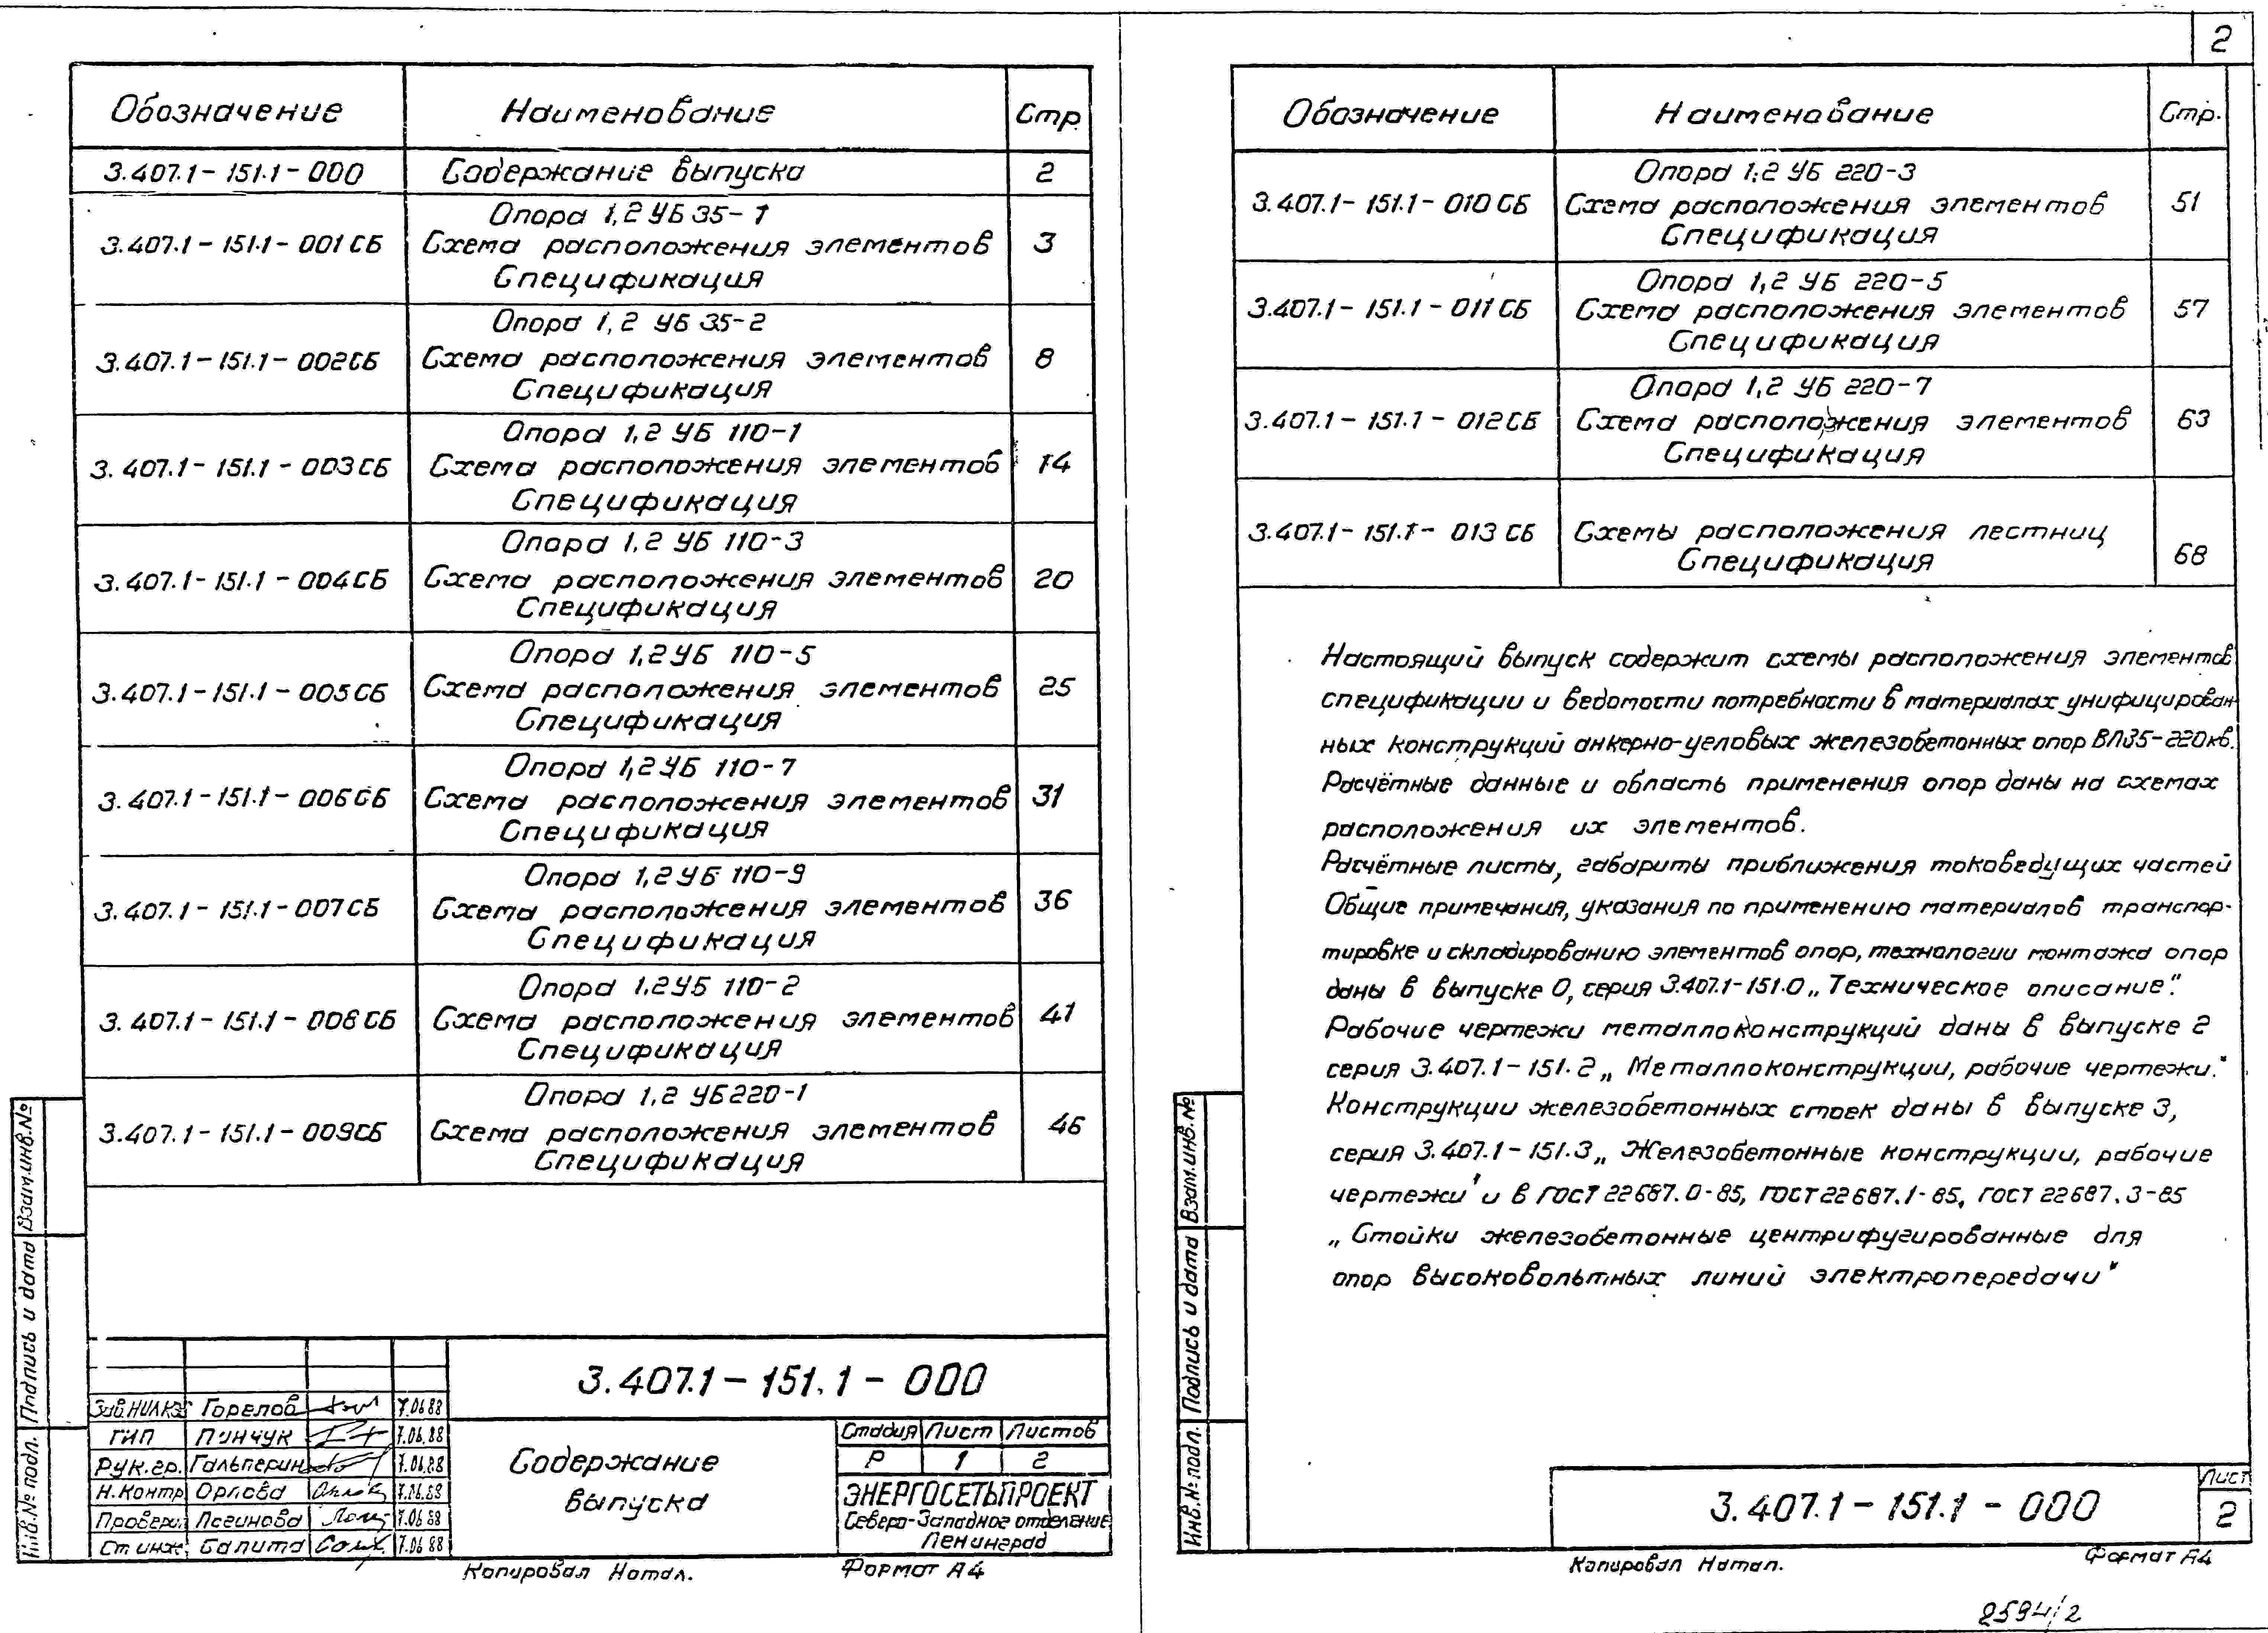 2
Обозначение Наименование Стр.
3.407.1-151.1-000 Содержание выпуска 2
Опора 1,2 УБ 35-1
3.407.1-151.1-001 СБ Схема расположения элементов 3
Спецификация
Опора 1,2 УБ 35-2
3.407.1-151.1-002СБ Схема расположения элементов 8
Спецификация
Опора 1,2 УБ 110-1
3.407.1-151.1-003СБ Схема расположения элементов 14
Спецификация
Опора 1,2 УБ 110-3
3.407.1-151.1-004СБ Схема расположения элементов 20
Спецификация
Опора 1,2 УБ 110-5
3.407.1-151.1-005СБ Схема расположения элементов 25
Спецификация
Опора 1,2 УБ 110-7
3.407.1-151.1-006СБ Схема расположения элементов 31
Спецификация
Опора 1,2 УБ 110-9
3.407.1-151.1-007СБ Схема расположения элементов 36
Спецификация
Опора 1,2 УБ 110-2
3.407.1-151.1-008СБ Схема расположения элементов 41
Спецификация
Опора 1,2 УБ 220-1
3.407.1-151.1-009СБ Схема расположения элементов 46
Спецификация
Взам.инв.№
Подпись и дата
Инв.№ подл.
3.407.1-151.1-000
Зав.НИЛКЭ Горелов 7.06.88
ГИП Пинчук 7.06.88
Рук.гр. Гальперин 7.06.88
Н.контр. Орлова 7.06.88
Провери. Логинова 7.06.88
Ст.инж. Салита 7.06.88
Содержание
выпуска
Стадия Лист Листов
Р 1 2
ЭНЕРГОСЕТЬПРОЕКТ
Северо-Западное отделение
Ленинград
Копировал Натал. Формат А4
Обозначение Наименование Стр.
Опора 1,2 УБ 220-3
3.407.1-151.1-010 СБ Схема расположения элементов 51
Спецификация
Опора 1,2 УБ 220-5
3.407.1-151.1-011 СБ Схема расположения элементов 57
Спецификация
Опора 1,2 УБ 220-7
3.407.1-151.1-012СБ Схема расположения элементов 63
Спецификация
3.407.1-151.1-013 СБ Схемы расположения лестниц
Спецификация 68
Настоящий выпуск содержит схемы расположения элементов
спецификации и ведомости потребности в материалах унифицирован-
ных конструкций анкерно-угловых железобетонных опор ВЛ35-220кв.
Расчётные данные и область применения опор даны на схемах
расположения их элементов.
Расчётные листы, габариты приближения токоведущих частей
Общие примечания, указания по применению материалов транспор-
тировке и складированию элементов опор, технологии монтажа опор
даны в выпуске 0, серия 3.407.1-151.0 „Техническое описание".
Рабочие чертежи металлоконструкций даны в выпуске 2
серия 3.407.1-151.2 „Металлоконструкции, рабочие чертежи."
Конструкции железобетонных стоек даны в выпуске 3,
серия 3.407.1-151.3 „Железобетонные конструкции, рабочие
чертежи" и в ГОСТ 22687.0-85, ГОСТ 22687.1-85, ГОСТ 22687.3-85
„Стойки железобетонные центрифугированные для
опор высоковольтных линий электропередачи"
Взам.инв.№
Подпись и дата
Инв.№ подл.
3.407.1-151.1-000
Лист
2
Копировал Натал. Формат А4
2594/2